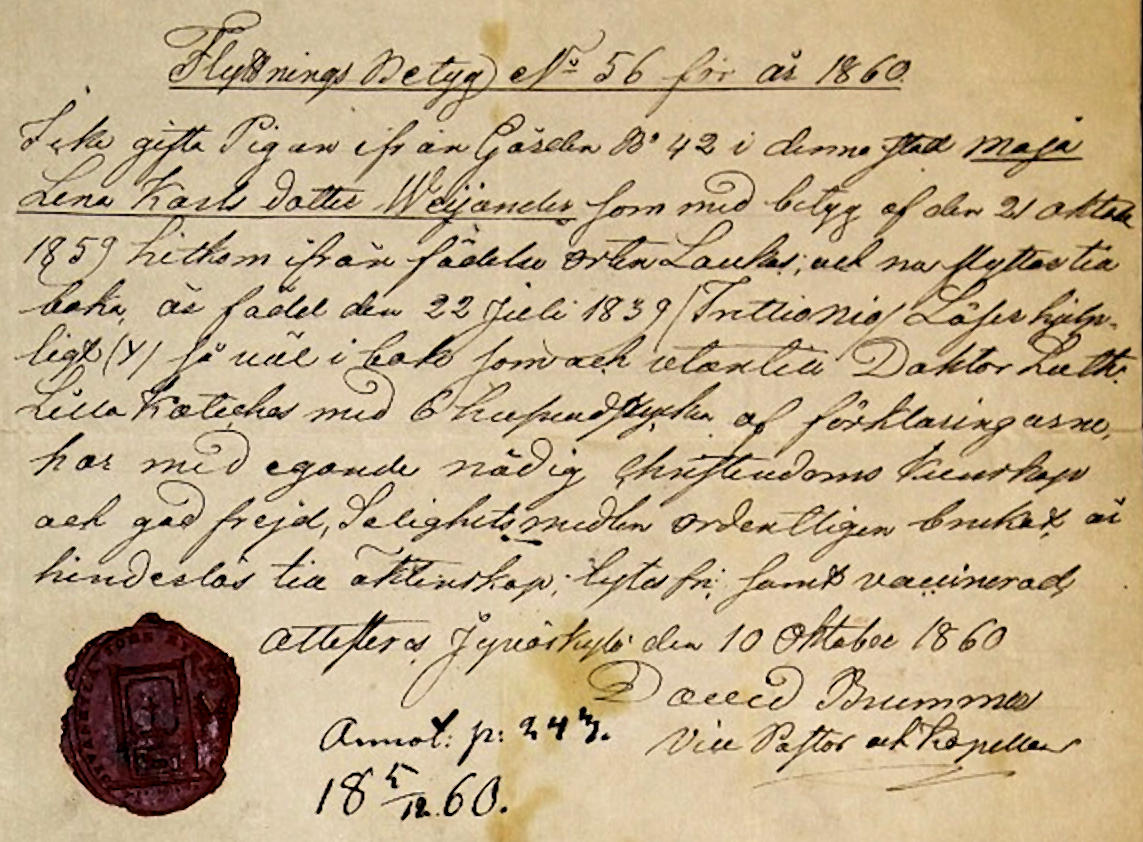 Flyttnings Betyg No 56 för år 1860
Icke gifta Pigan ifrån Gården No 42 i denna stad Maja
Lena Karls dotter Weijander som med betyg af den 21 oktob
1859 hitkom ifrån födelse orten Laukas, och nu flyttar till
baka, är född den 22 Juli 1839 (Trettionio) Läser hjelp-
ligt (Y) så väl i bok som och utantill Doktor Luth:
Lilla Katekes med 6 hufvudstycken af förklaringarne,
har med egande nödig Christendoms kunskap
och god frejd, Salighetsmedlen ordentligen brukat, är
hinderslös till äktenskap, lytes fri, samt vaccinerad,
attesteras Jyväskylä den 10 Oktober 1860
David Brummer
Vice Pastor och Kapellan
Annot: p: 243.
18 5/12 60.